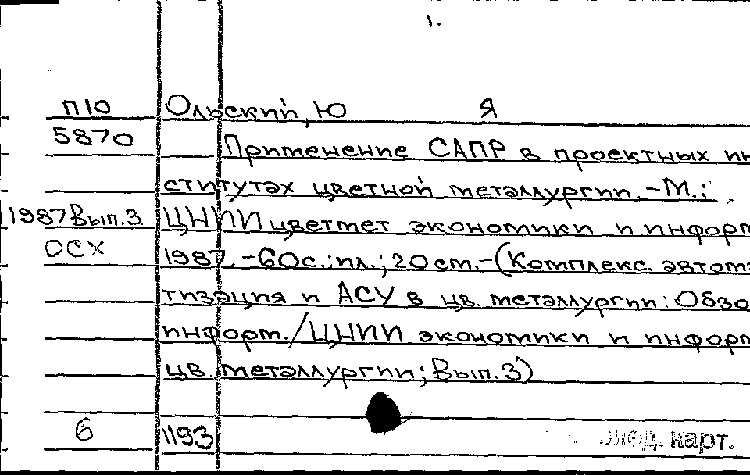 1.
П10 Ольский, Ю Я
5870 Применение САПР в проектных ин
ститутах цветной металлургии.-М.:
1987 Вып.3 ЦНИИцветмет экономики и информ
ССХ 1987.-60с.:ил.;20см.-(Комплекс. автома
тизация и АСУ в цв. металлургии: Обзо
информ./ЦНИИ экономики и информ
цв. металлургии; Вып.3)
6 1193
карт.